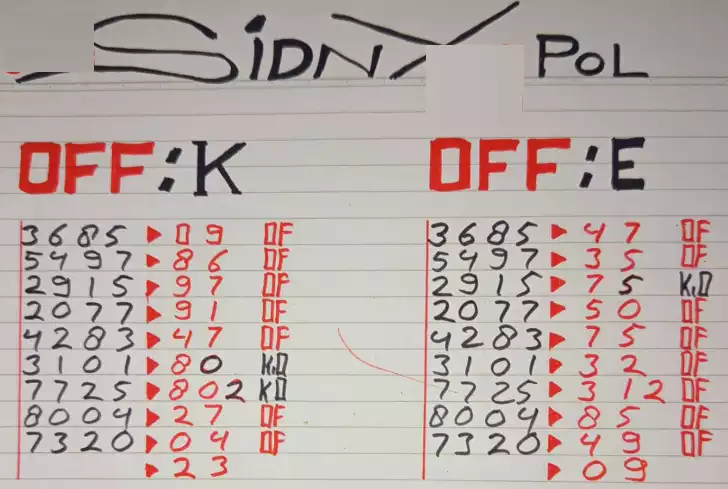 SiDNX POL
OFF:K
3685 ▶ 09 OF
5497 ▶ 86 OF
2915 ▶ 97 OF
2077 ▶ 91 OF
4283 ▶ 47 OF
3101 ▶ 80 K.O
7725 ▶ 802 KO
8004 ▶ 27 OF
7320 ▶ 04 OF
▶ 23
OFF:E
3685 ▶ 47 OF
5497 ▶ 35 OF
2915 ▶ 75 K.O
2077 ▶ 50 OF
4283 ▶ 75 OF
3101 ▶ 32 OF
7725 ▶ 312 OF
8004 ▶ 85 OF
7320 ▶ 49 OF
▶ 09